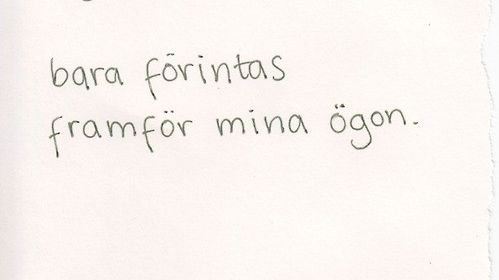 bara förintas
framför mina ögon.